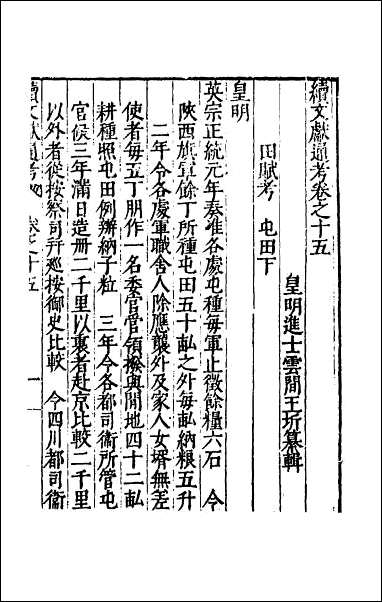 續文獻通考卷之十五
皇明進士雲間王圻纂輯
田賦考 屯田下
皇明
英宗正統元年奏准各處屯種每軍止徵餘糧六石 令
陝西旗軍餘丁所種屯田五十畝之外每畝納粮五升
二年令各處軍職舍人除應襲外及家人女壻無差
使者每五丁朋作一名委官管領撥與閒地四十二畝
耕種照屯田例辦納子粒 三年令各都司衛所管屯
官候三年滿日造冊二千里以裏者赴京比較二千里
以外者從按察司并廵按御史比較 令四川都司衛
續文獻通考 卷之十五 一